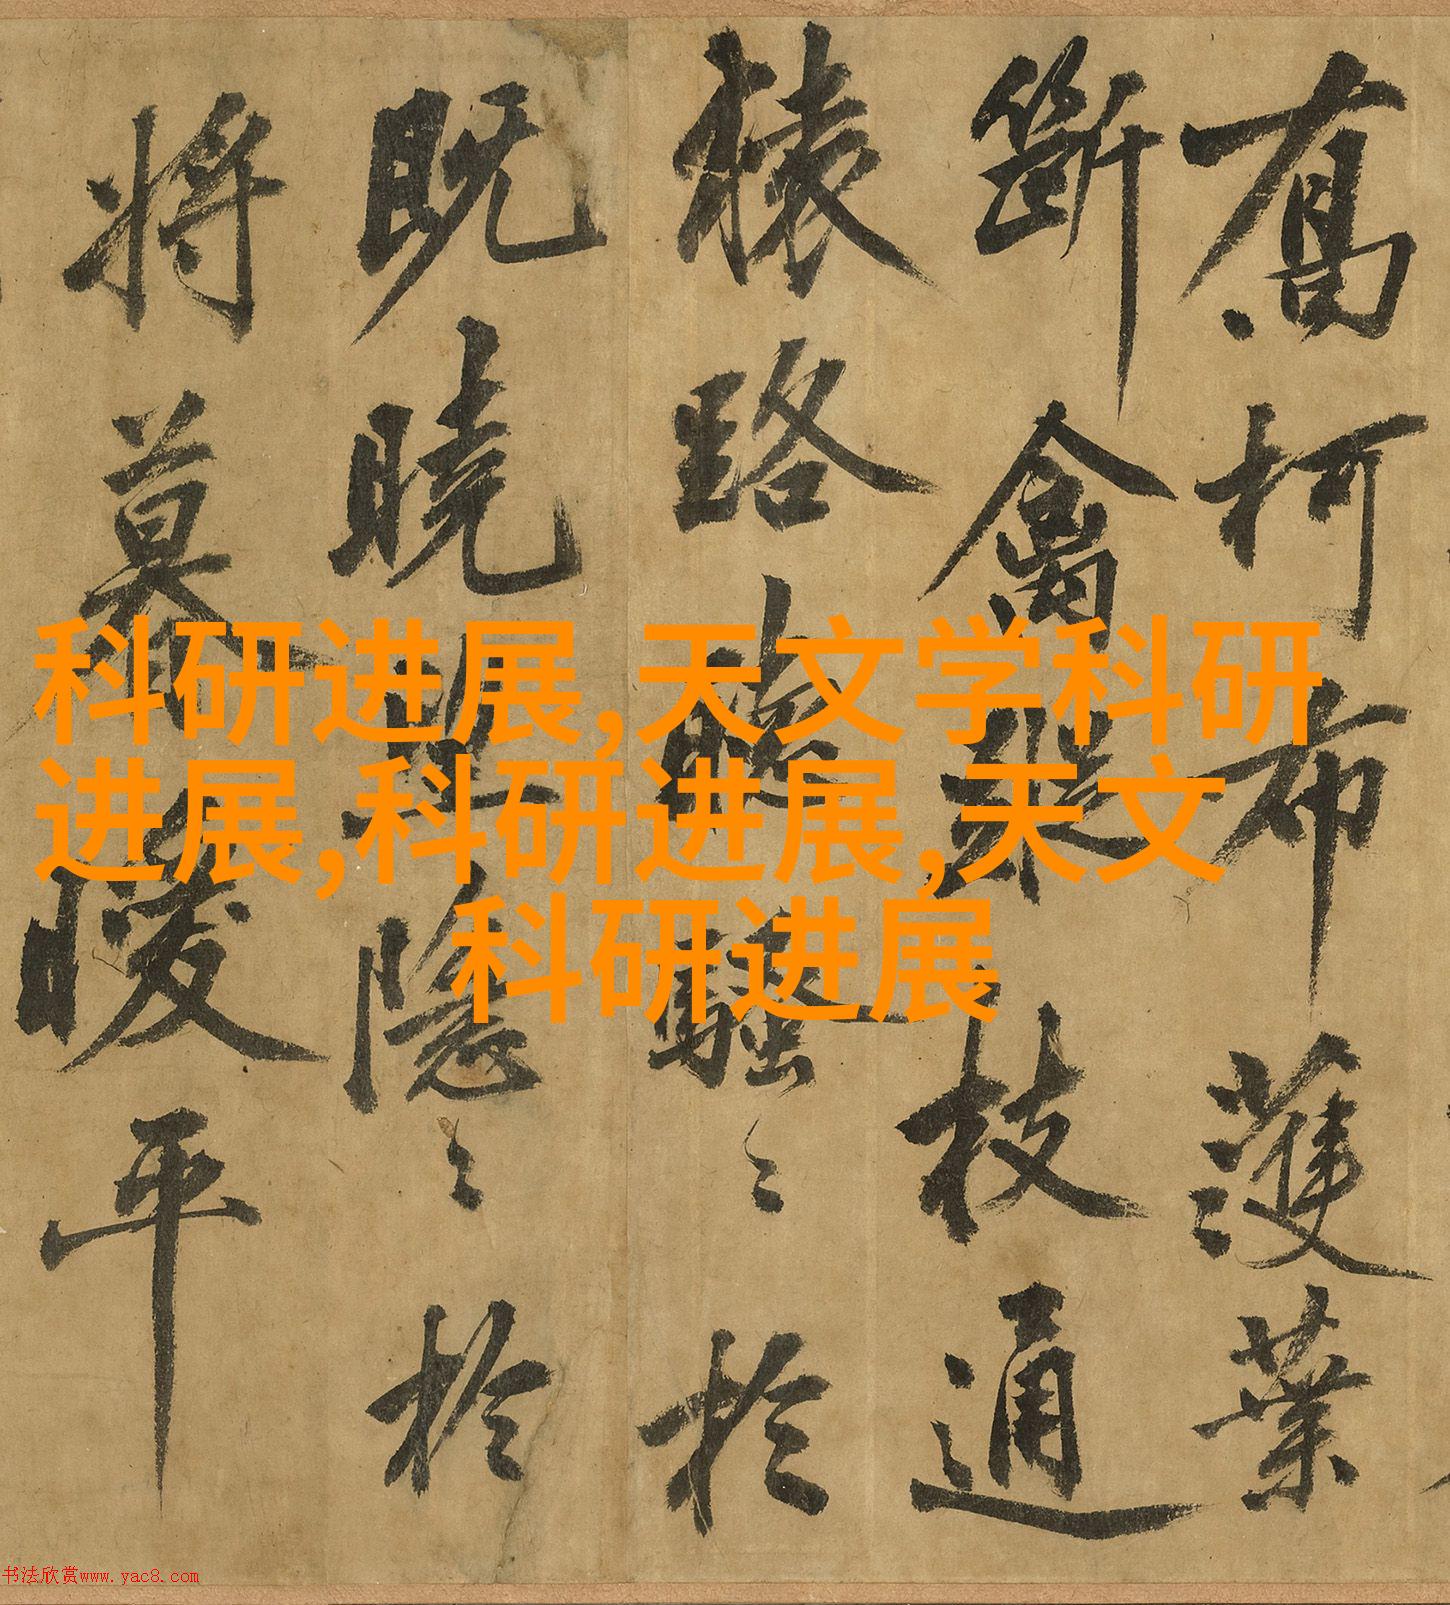 喬柯布濩葉
斷禽枝通
猿路聽騷々於
既曉望隱々於
將暮曖平
科研进展,天文学科研
进展,科研进展,天文
科研进展
书法欣赏www.yac8.com